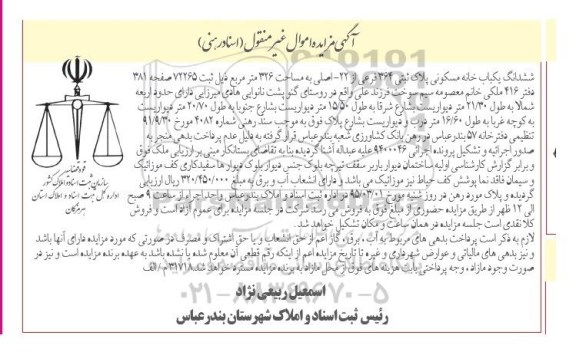 آگهی مزایده اموال غیر منقول (اسناد رهنی)
ششدانگ یکباب خانه مسکونی پلاک ثبتی ۳۶۴ فرعی از ۲۲- اصلی به مساحت ۳۲۶ متر مربع ذیل ثبت ۷۲۲۶۵ صفحه ۳۸۱
دفتر ۴۱۶ ملکی خانم معصومه سیم سوخت فرزند علی واقع در روستای گنو پشت نانوایی هادی میرزایی دارای حدود اربعه
شمالا به طول ۲۱/۳۰ متر دیواریست بشارع شرقا به طول ۱۵/۵۰ متر دیواریست بشارع جنوبا به طول ۲۰/۷۰ متر دیواریست
به کوچه غربا به طول ۱۶/۶۰ متر درب و دیواریست بشارع پلاک فوق به موجب سند رهنی شماره ۴۰۸۲ مورخ ۹۱/۹/۳۰
تنظیمی دفترخانه ۵۷ بندرعباس در رهن بانک کشاورزی شعبه بندرعباس قرار گرفته به دلیل عدم پرداخت بدهی منجر به
صدور اجرائیه و تشکیل پرونده اجرائی ۹۴۰۰۰۴۶ علیه عبداله آشنا گردیده بنا به تقاضای بستانکار مبنی بر ارزیابی ملک فوق
و برابر گزارش کارشناسی اولیه ساختمان دیوار باربر سقف تیرچه بلوک جنس دیوار بلوک دیوار ها سفیدکاری کف موزائیک
و سیمان فاقد نما پوشش کف حیاط نیز موزائیک می باشد و دارای انشعاب آب و برق به مبلغ ۳۲۰/۴۵۰/۰۰۰ ریال ارزیابی
گردیده و پلاک مورد رهن در روز شنبه مورخ ۹۵/۰۳/۰۱ در اداره ثبت اسناد و املاک بندرعباس واحد اجرا از ساعت ۹ صبح
الی ۱۲ ظهر از طریق مزایده حضوری از مبلغ فوق به فروش می رسد شرکت در جلسه مزایده برای عموم آزاد است و فروش
کلا نقدی است جلسه مزایده در همان ساعت و مکان تشکیل خواهد شد.
لازم به ذکر است پرداخت بدهی های مربوط به آب، برق، گاز اعم از حق انشعاب و یا حق اشتراک و مصرف در صورتی که مورد مزایده دارای آنها باشد
و نیز بدهی های مالیاتی و عوارض شهرداری و غیره تا تاریخ مزایده اعم از اینکه رقم قطعی آن معلوم شده یا نشده باشد به عهده برنده مزایده است و نیز در
صورت وجود مازاد، وجه پرداختی بابت هزینه های فوق از محل مازاد به برنده مزایده مسترد خواهد شد ۳۱۷۱۸/م الف
اسمعیل ربیعی نژاد
رئیس ثبت اسناد و املاک شهرستان بندرعباس
قوه قضائیه
سازمان ثبت اسناد و املاک کشور
اداره کل ثبت اسناد و املاک استان
هرمزگان
۰۲۱-۸۸۳۴۹۶۷۰-۵